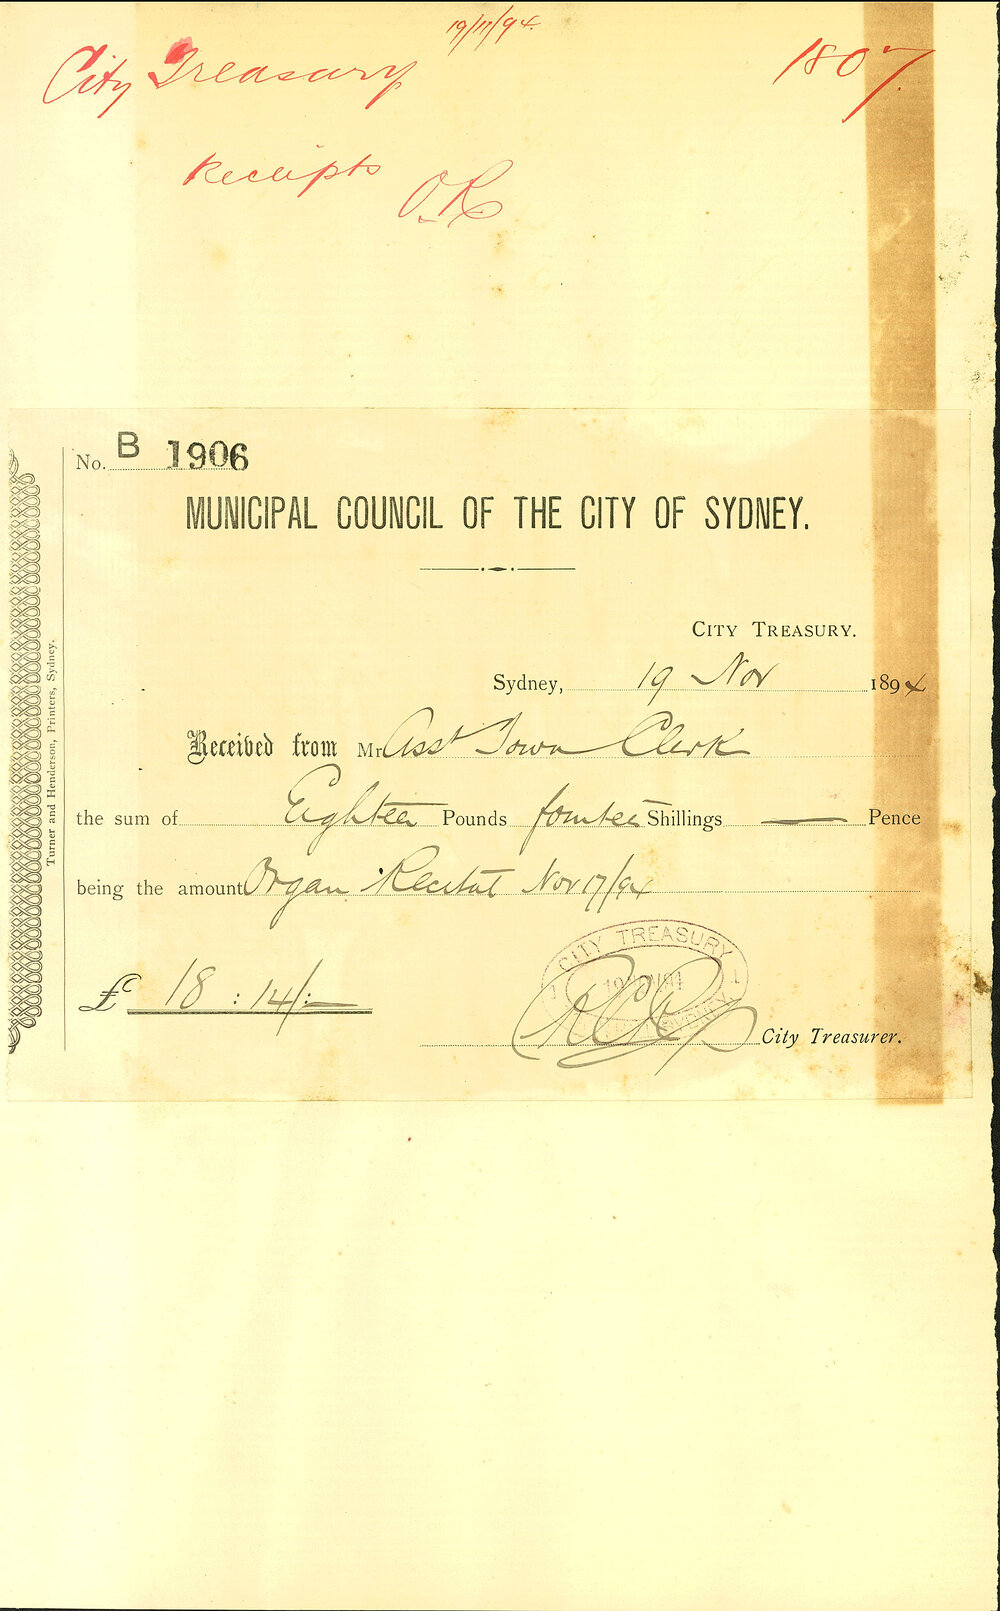 19/11/94.
City Treasury 1807
Receipts O.R
No. B 1906
MUNICIPAL COUNCIL OF THE CITY OF SYDNEY.
CITY TREASURY.
Sydney, 19 Nov 1894
Received from Mr Asst Town Clerk
the sum of Eighteen Pounds fourteen Shillings — Pence
being the amount Organ Recital Nov 17/94
CITY TREASURY
£ 18 : 14/: —
City Treasurer.
Turner and Henderson, Printers, Sydney.